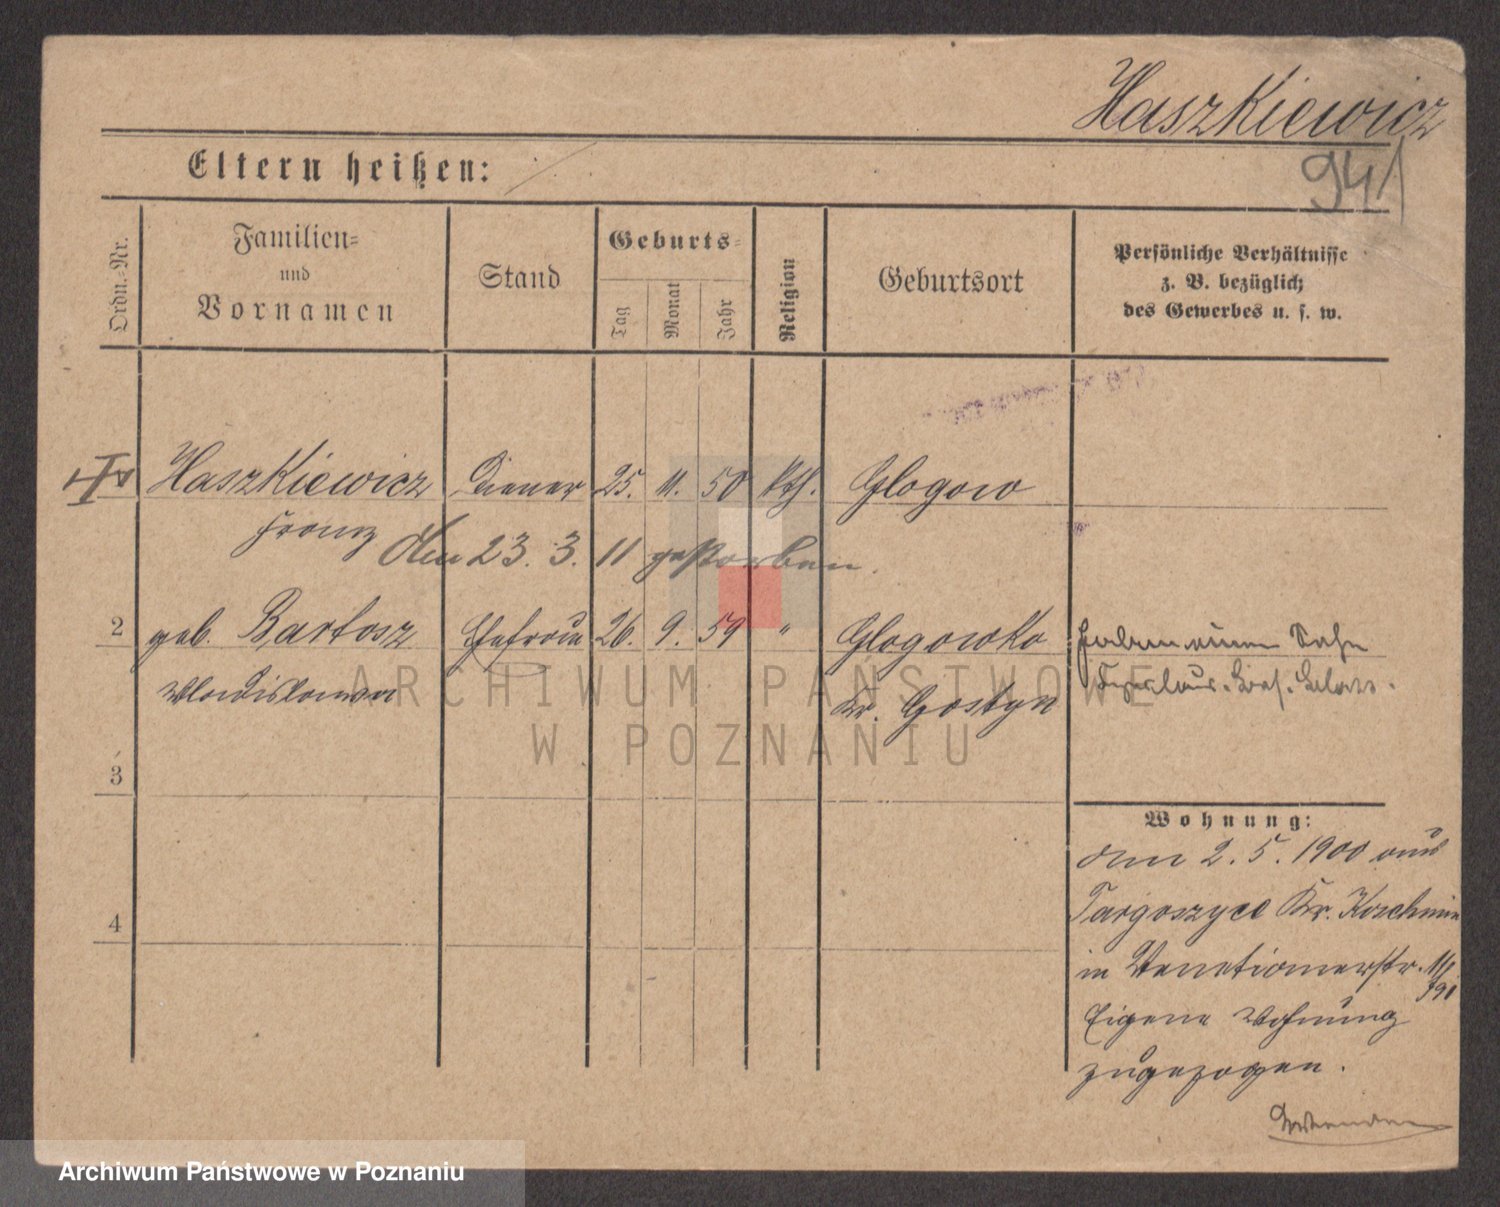 Haszkiewicz
941
Eltern heißen:
Ordn.-Nr.
Familien-
und
Vornamen
Stand
Geburts-
Tag
Monat
Jahr
Religion
Geburtsort
Persönliche Verhältnisse
z. B. bezüglich
des Gewerbes u. s. w.
Haszkiewicz Diener 25. 11. 50 kth. Glogowo
Franz den 23. 3. 11 gestorben.
2 geb. Bartosz Ehefrau 26. 9. 59 " Glogowko
Wladislawa Kr. Gostyn
haben einen Sohn
3
4
Wohnung:
den 2. 5. 1900 aus
Targoszyce Kr. Koschmin
in Venetianerstr.
Eigene Wohnung
zugezogen.
Wenden
ARCHIWUM PAŃSTWOWE
W POZNANIU
Archiwum Państwowe w Poznaniu